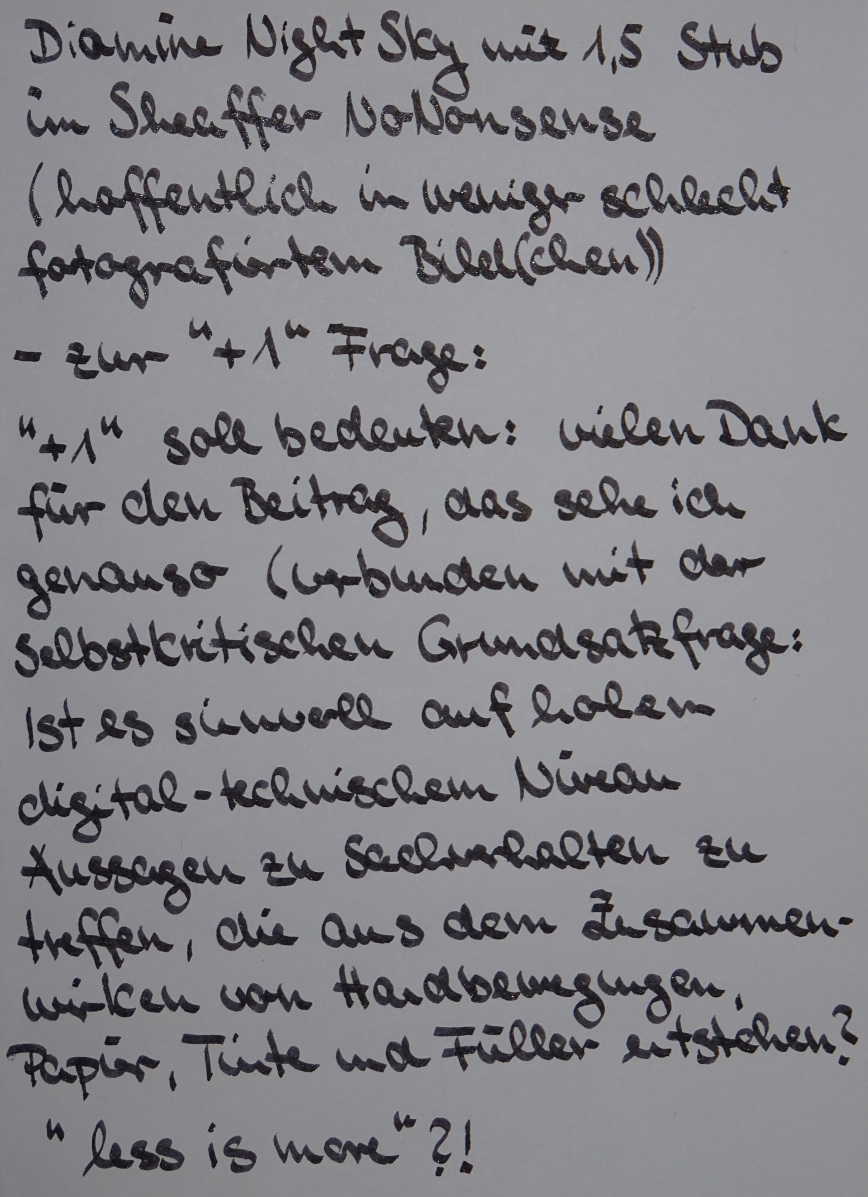 Diamine Night Sky mit 1,5 Stub
im Sheaffer NoNonsense
(hoffentlich in weniger schlecht
fotografiertem Bild(chen))
- zur "+1" Frage:
"+1" soll bedeuten: vielen Dank
für den Beitrag, das sehe ich
genauso (verbunden mit der
selbstkritischen Grundsatzfrage:
Ist es sinnvoll auf hohem
digital-technischem Niveau
Aussagen zu Sachverhalten zu
treffen, die aus dem Zusammen-
wirken von Handbewegungen,
Papier, Tinte und Füller entstehen?
"less is more"?!